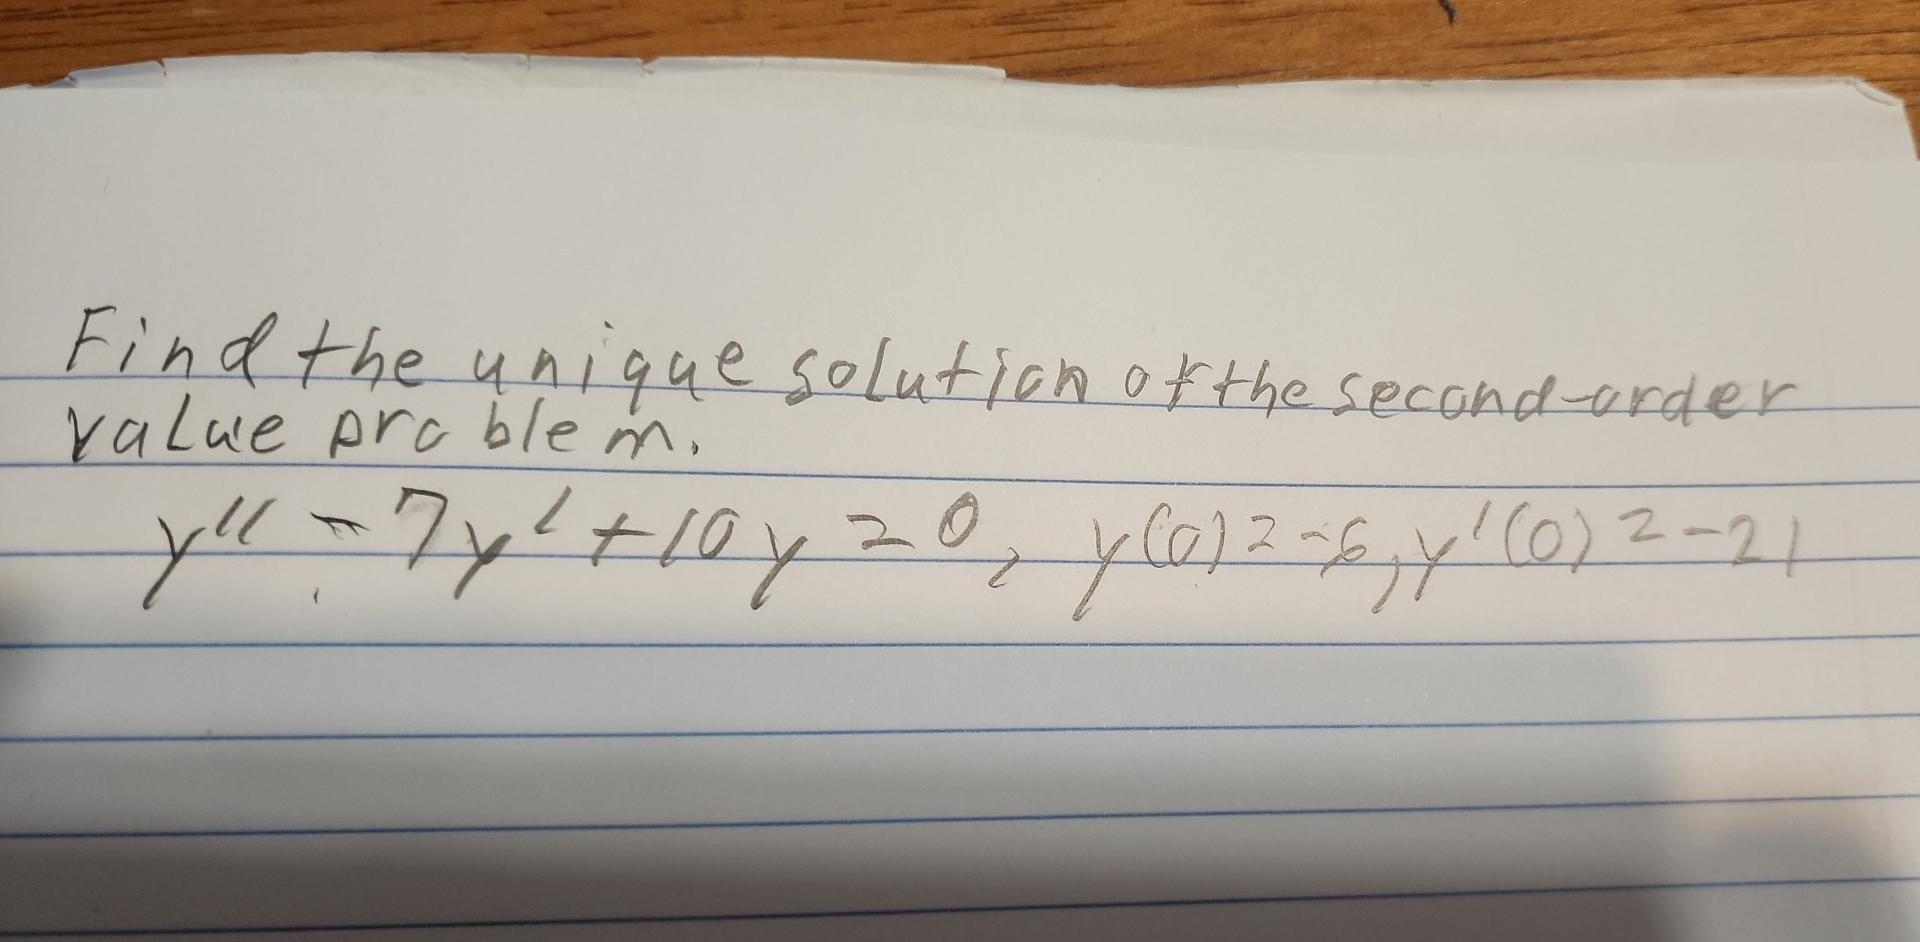 Find the unique solution of the second-order
value problem.
y'' - 7y' + 10y = 0, y(0) = -6, y'(0) = -21